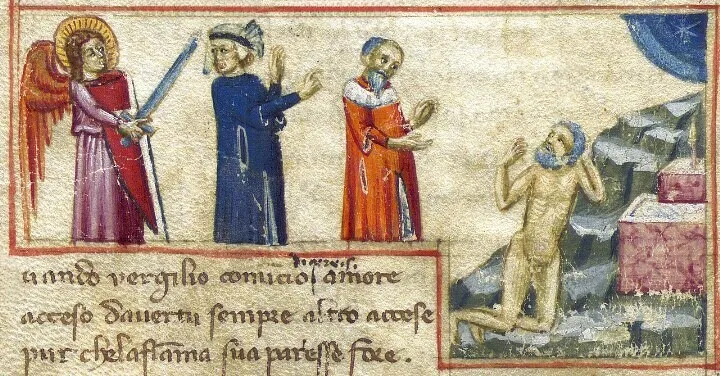 uando vergilio comicio amore
acceso dauertu sempre altro accese
pur chelafiāma sua paresse fore.